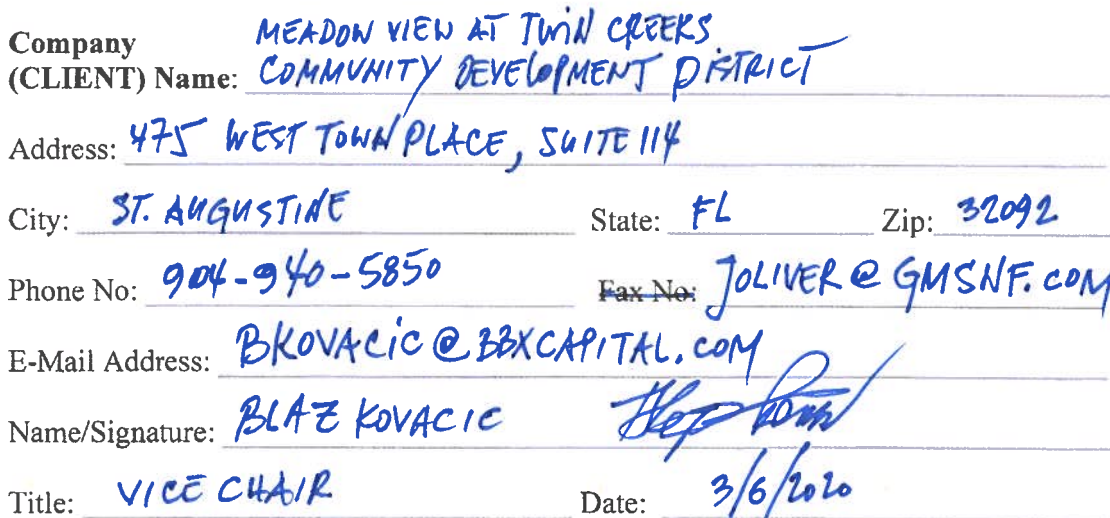 MEADOW VIEW AT TWIN CREEKS
Company
(CLIENT) Name: COMMUNITY DEVELOPMENT DISTRICT
Address: 475 WEST TOWN PLACE, SUITE 114
City: ST. AUGUSTINE State: FL Zip: 32092
Phone No: 904-940-5850 Fax No: JOLIVER@GMSNF.COM
E-Mail Address: BKOVACIC@BBXCAPITAL.COM
Name/Signature: BLAZ KOVACIC
Title: VICE CHAIR Date: 3/6/2020